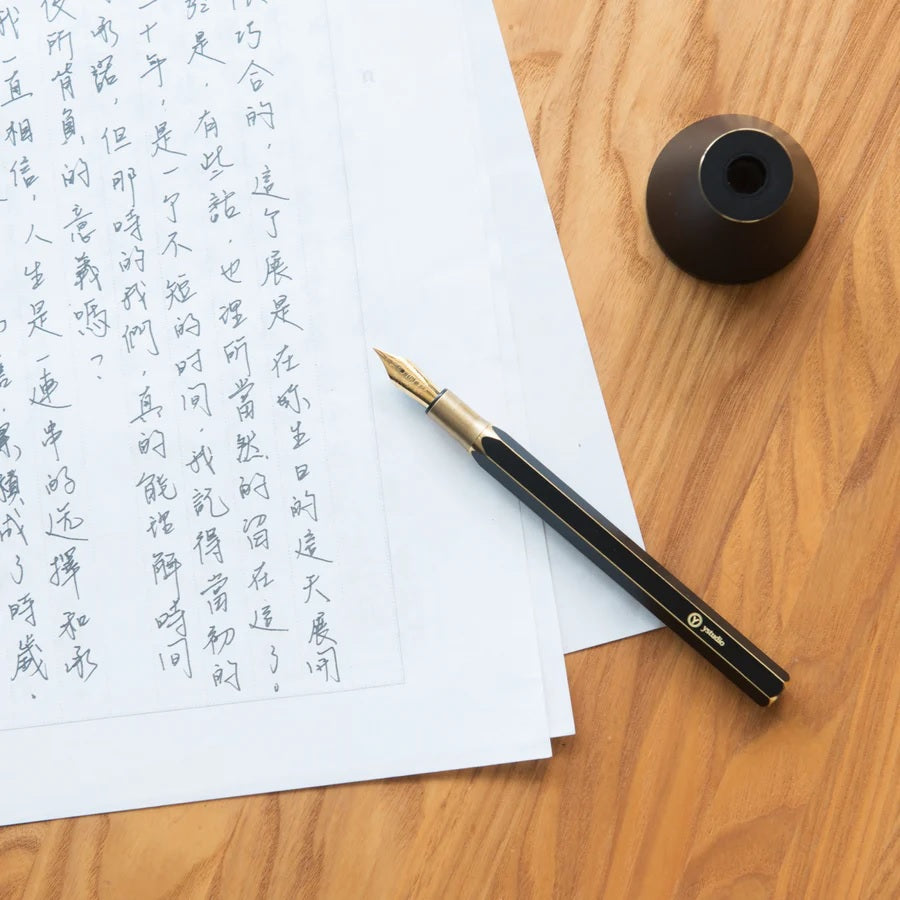 很巧合的，這个展是在妳生日的這天展開
是，有些話，也理所當然的留在這了。
二十年，是一个不短的时间，我記得當初的
承諾，但那時的我們，真的能理解時间
所背負的意義嗎？
我一直相信，人生是一連串的选擇和承
累積成了時歲，
ystudio